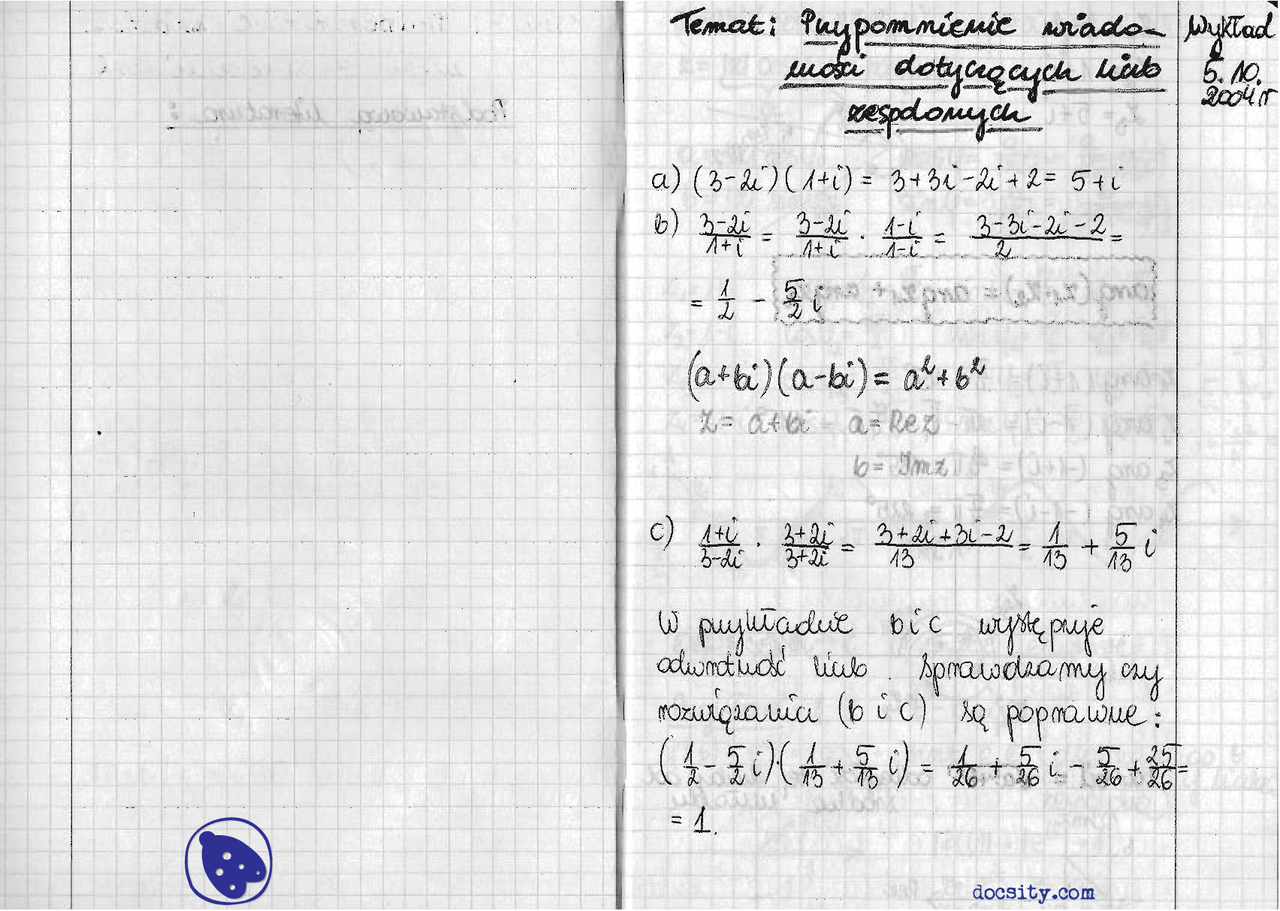 Temat: Przypomnienie wiado-
mości dotyczących liczb
zespolonych
Wykład
5.10.
2004r
a) (3-2i)(1+i) = 3+3i-2i+2 = 5+i
b) \frac{3-2i}{1+i} = \frac{3-2i}{1+i} · \frac{1-i}{1-i} = \frac{3-3i-2i-2}{2} =
= \frac{1}{2} - \frac{5}{2} i
(a+bi)(a-bi) = a²+b²
z = a+bi a = Re z
b = Im z
c) \frac{1+i}{3-2i} · \frac{3+2i}{3+2i} = \frac{3+2i+3i-2}{13} = \frac{1}{13} + \frac{5}{13} i
W przykładzie b i c występuje
odwrotność liczb. Sprawdzamy czy
rozwiązania (b i c) są poprawne:
(\frac{1}{2} - \frac{5}{2} i)·(\frac{1}{13} + \frac{5}{13} i) = \frac{1}{26} + \frac{5}{26} i - \frac{5}{26} + \frac{25}{26} =
= 1.
docsity.com